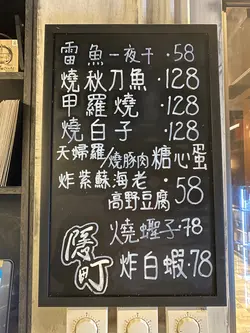 雷魚一夜干·58
燒秋刀魚·128
甲羅燒·128
燒白子·128
天婦羅/燒豚肉糖心蛋
炸紫蘇海老·58
高野豆腐
燒蟶子·78
炸白蝦·78